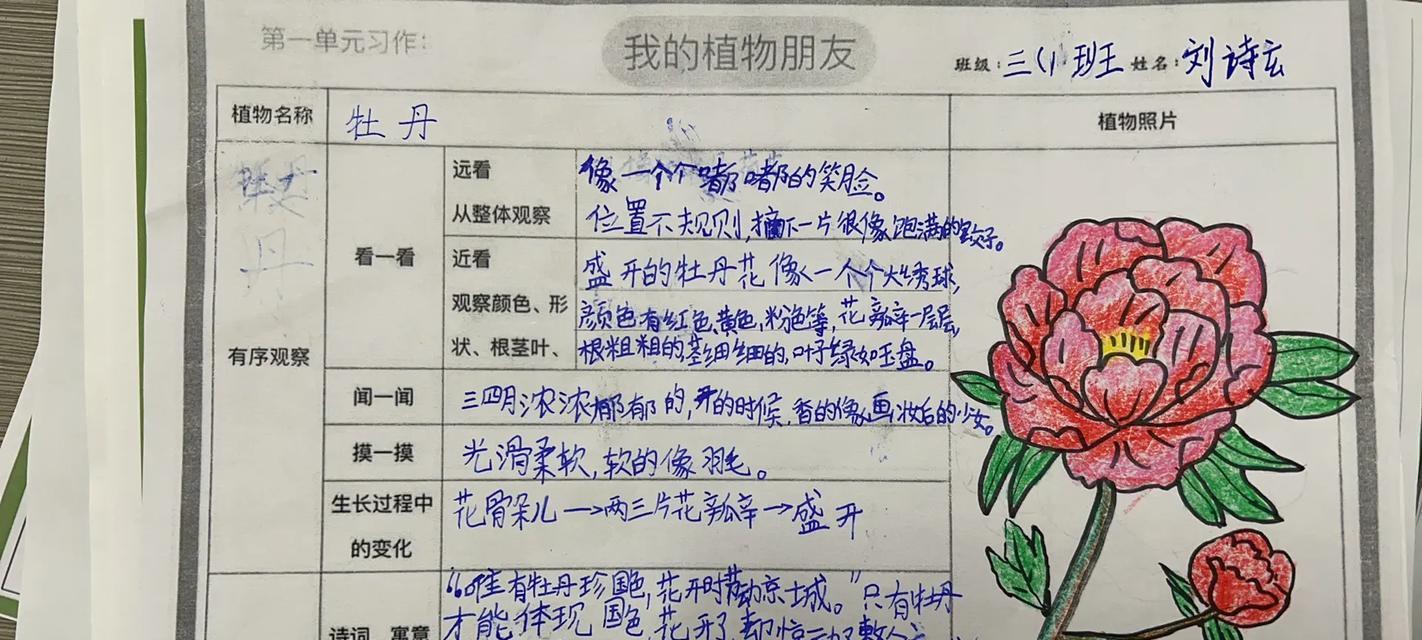 第一单元习作：
我的植物朋友
班级：三(1)班 姓名：刘诗云
植物名称 牡丹 植物照片
有序观察
看一看
远看
从整体观察
像一个个嘟嘟的笑脸。
位置不规则,摘下一片很像饱满的饺子。
近看
观察颜色、形
状、根茎叶、
盛开的牡丹花像一个个大绣球,
颜色有红色,黄色,粉色等,花瓣一层层,
根粗粗的,茎细细的,叶子绿如玉盘。
闻一闻 三四月浓浓郁郁的,开的时候,香的像画妆后的少女。
摸一摸 光滑柔软,软的像羽毛。
生长过程中
的变化
花骨朵儿→两三片花瓣→盛开
诗词、寓意
“唯有牡丹珍国色,花开时节动京城。”只有牡丹
才能体现国色,花开了,却惊动了整个